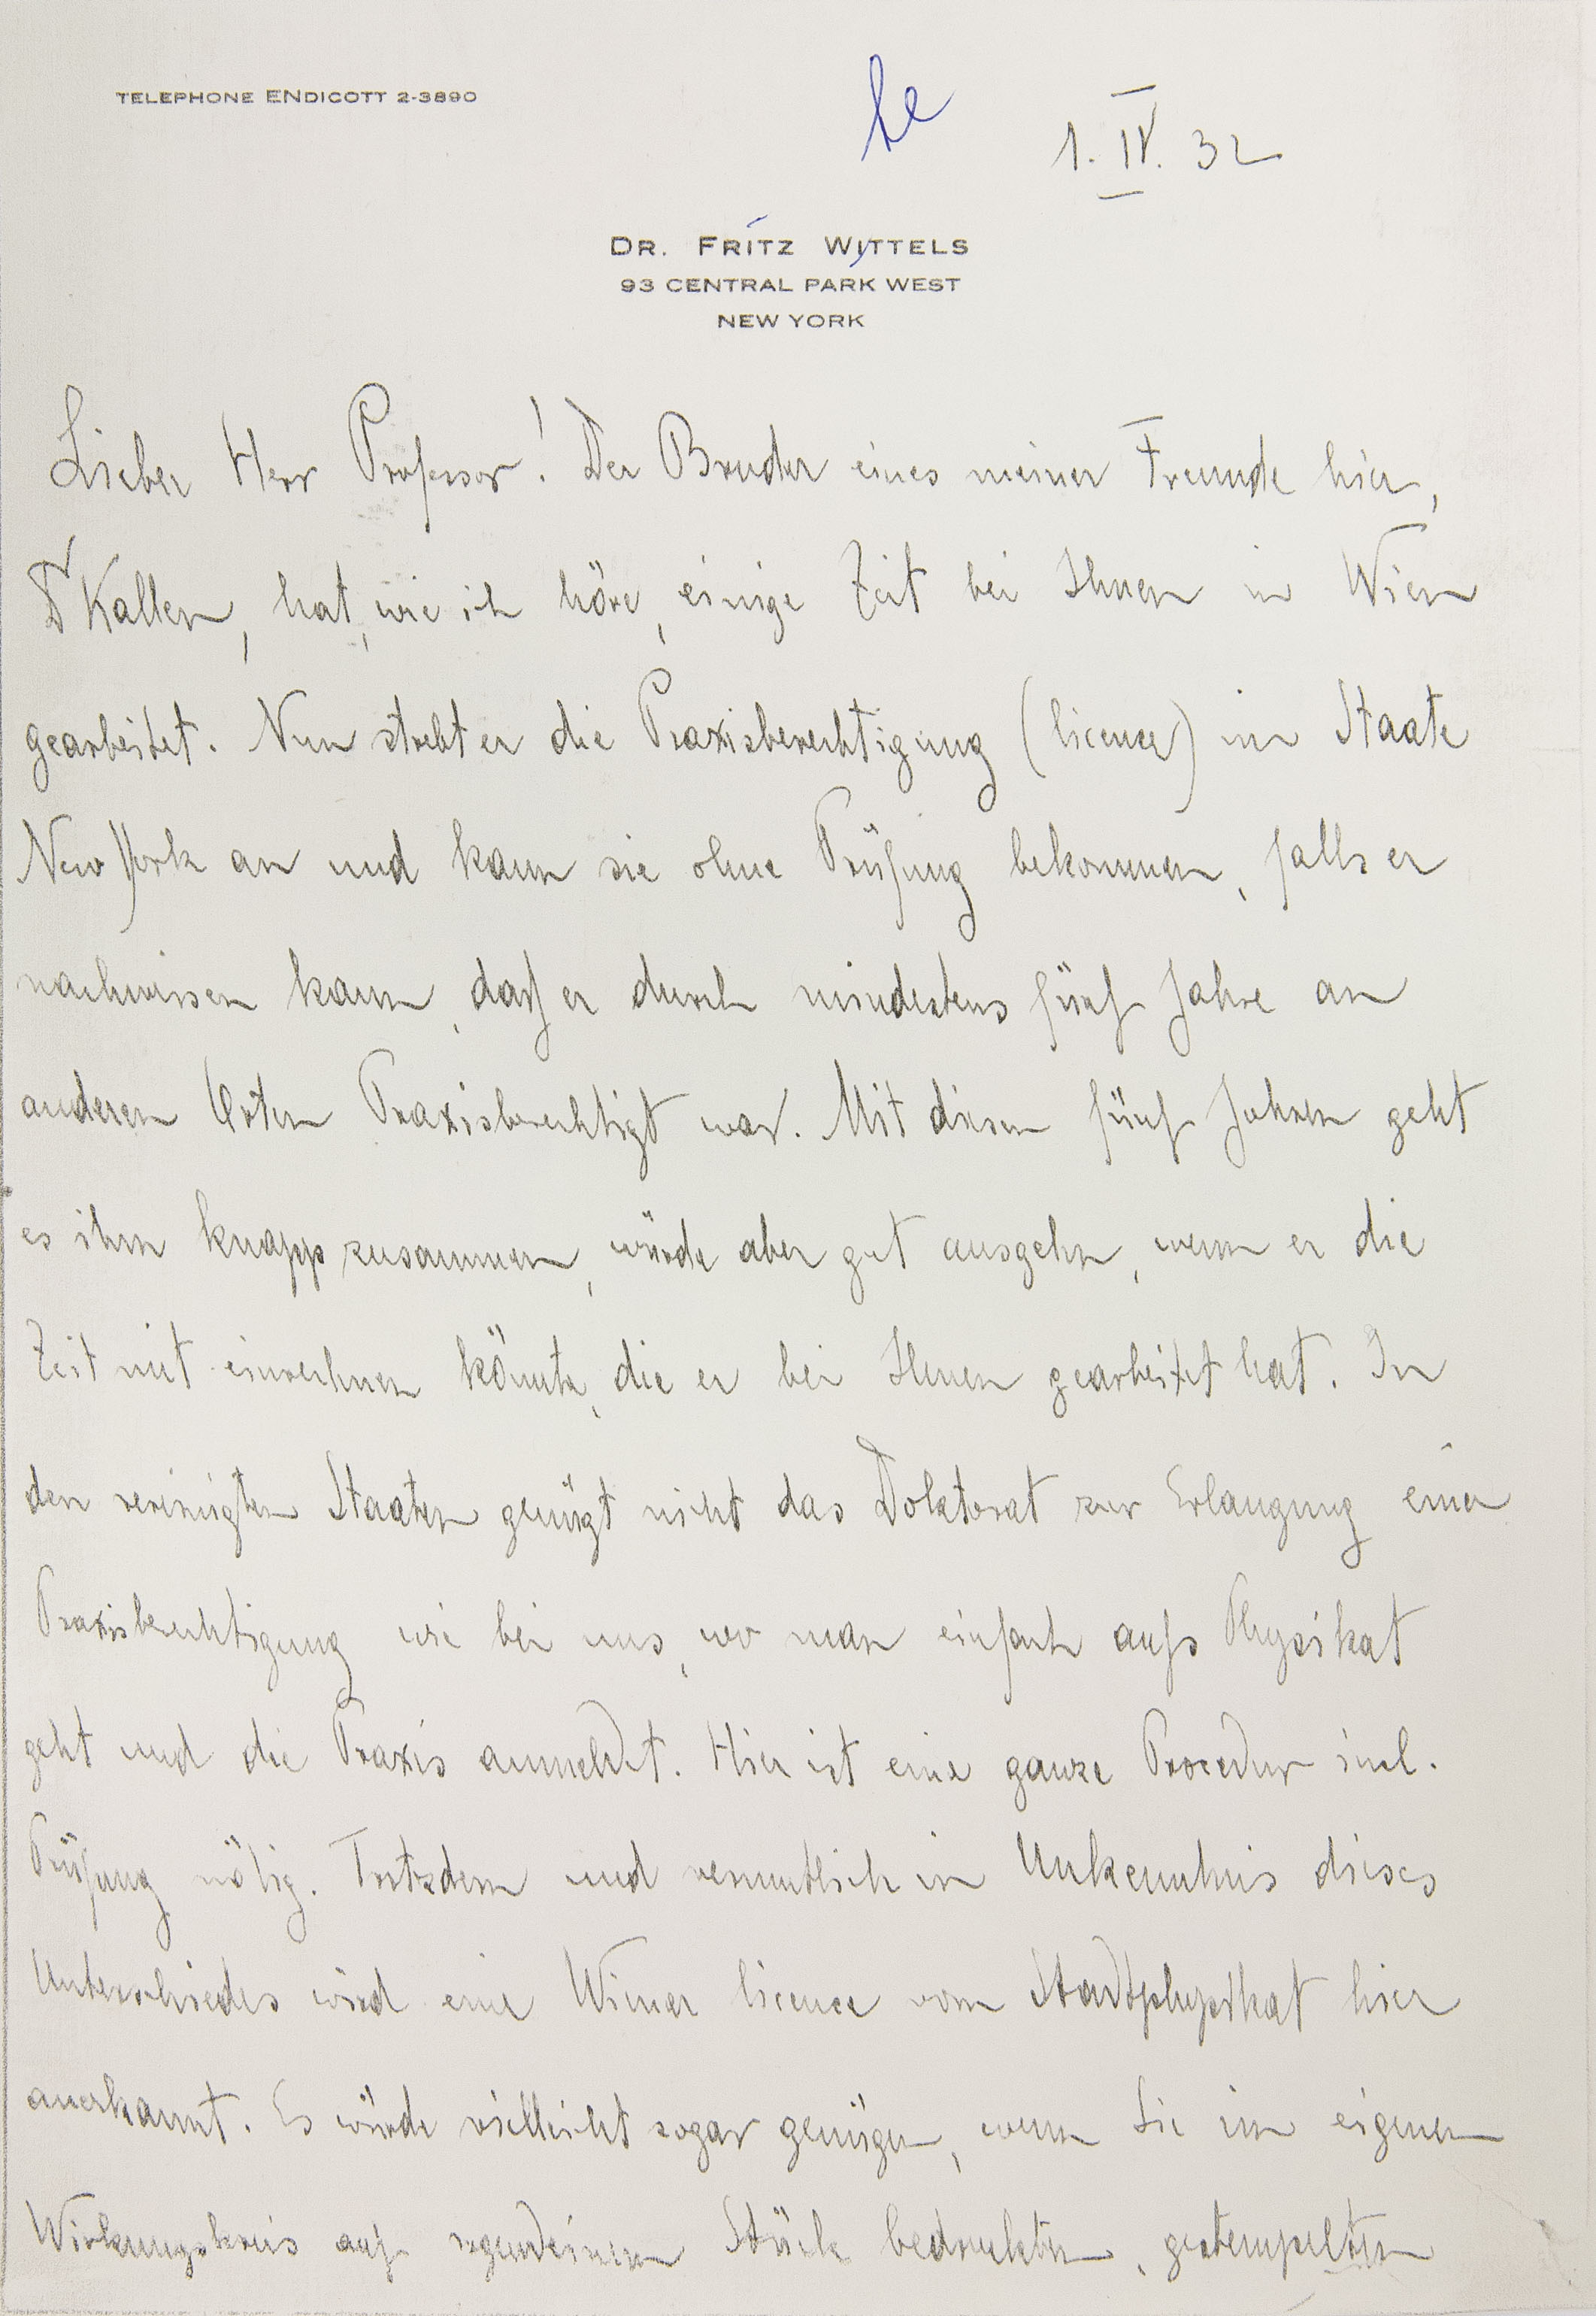 TELEPHONE ENDICOTT 2-3890
1. IV. 32
DR. FRITZ WITTELS
93 CENTRAL PARK WEST
NEW YORK
Lieber Herr Professor! Der Bruder eines meiner Freunde hier,
Dr Kallen, hat, wie ich höre, einige Zeit bei Ihnen in Wien
gearbeitet. Nun strebt er die Praxisberechtigung (licence) im Staate
New York an und kann sie ohne Prüfung bekommen, falls er
nachweisen kann, daß er durch mindestens fünf Jahre an
anderen Orten Praxisberechtigt war. Mit diesen fünf Jahren geht
es ihm knapp zusammen, würde aber gut ausgehn, wenn er die
Zeit mit einrechnen könnte, die er bei Ihnen gearbeitet hat. In
den vereinigten Staaten genügt nicht das Doktorat zur Erlangung einer
Praxisberechtigung wie bei uns, wo man einfach aufs Physikat
geht und die Praxis anmeldet. Hier ist eine ganze Procedur incl.
Prüfung nötig. Trotzdem und vermutlich in Unkenntnis dieses
Unterschiedes wird eine Wiener licence vom Stadtphysikat hier
anerkannt. Es würde vielleicht sogar genügen, wenn Sie im eigenen
Wirkungskreis auf irgendeinem Stück bedruckten, gestempelten